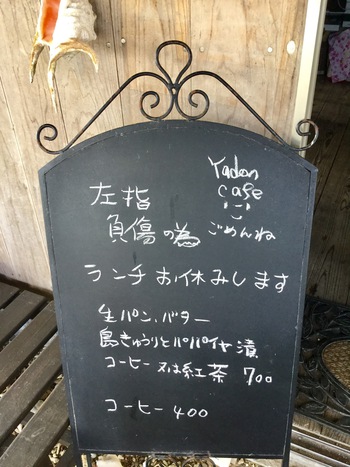 Yadon
cafe
左指
負傷の為 ごめんね
ランチお休みします
生パン、バター
島きゅうりとパパイヤ漬
コーヒー又は紅茶 700
コーヒー 400